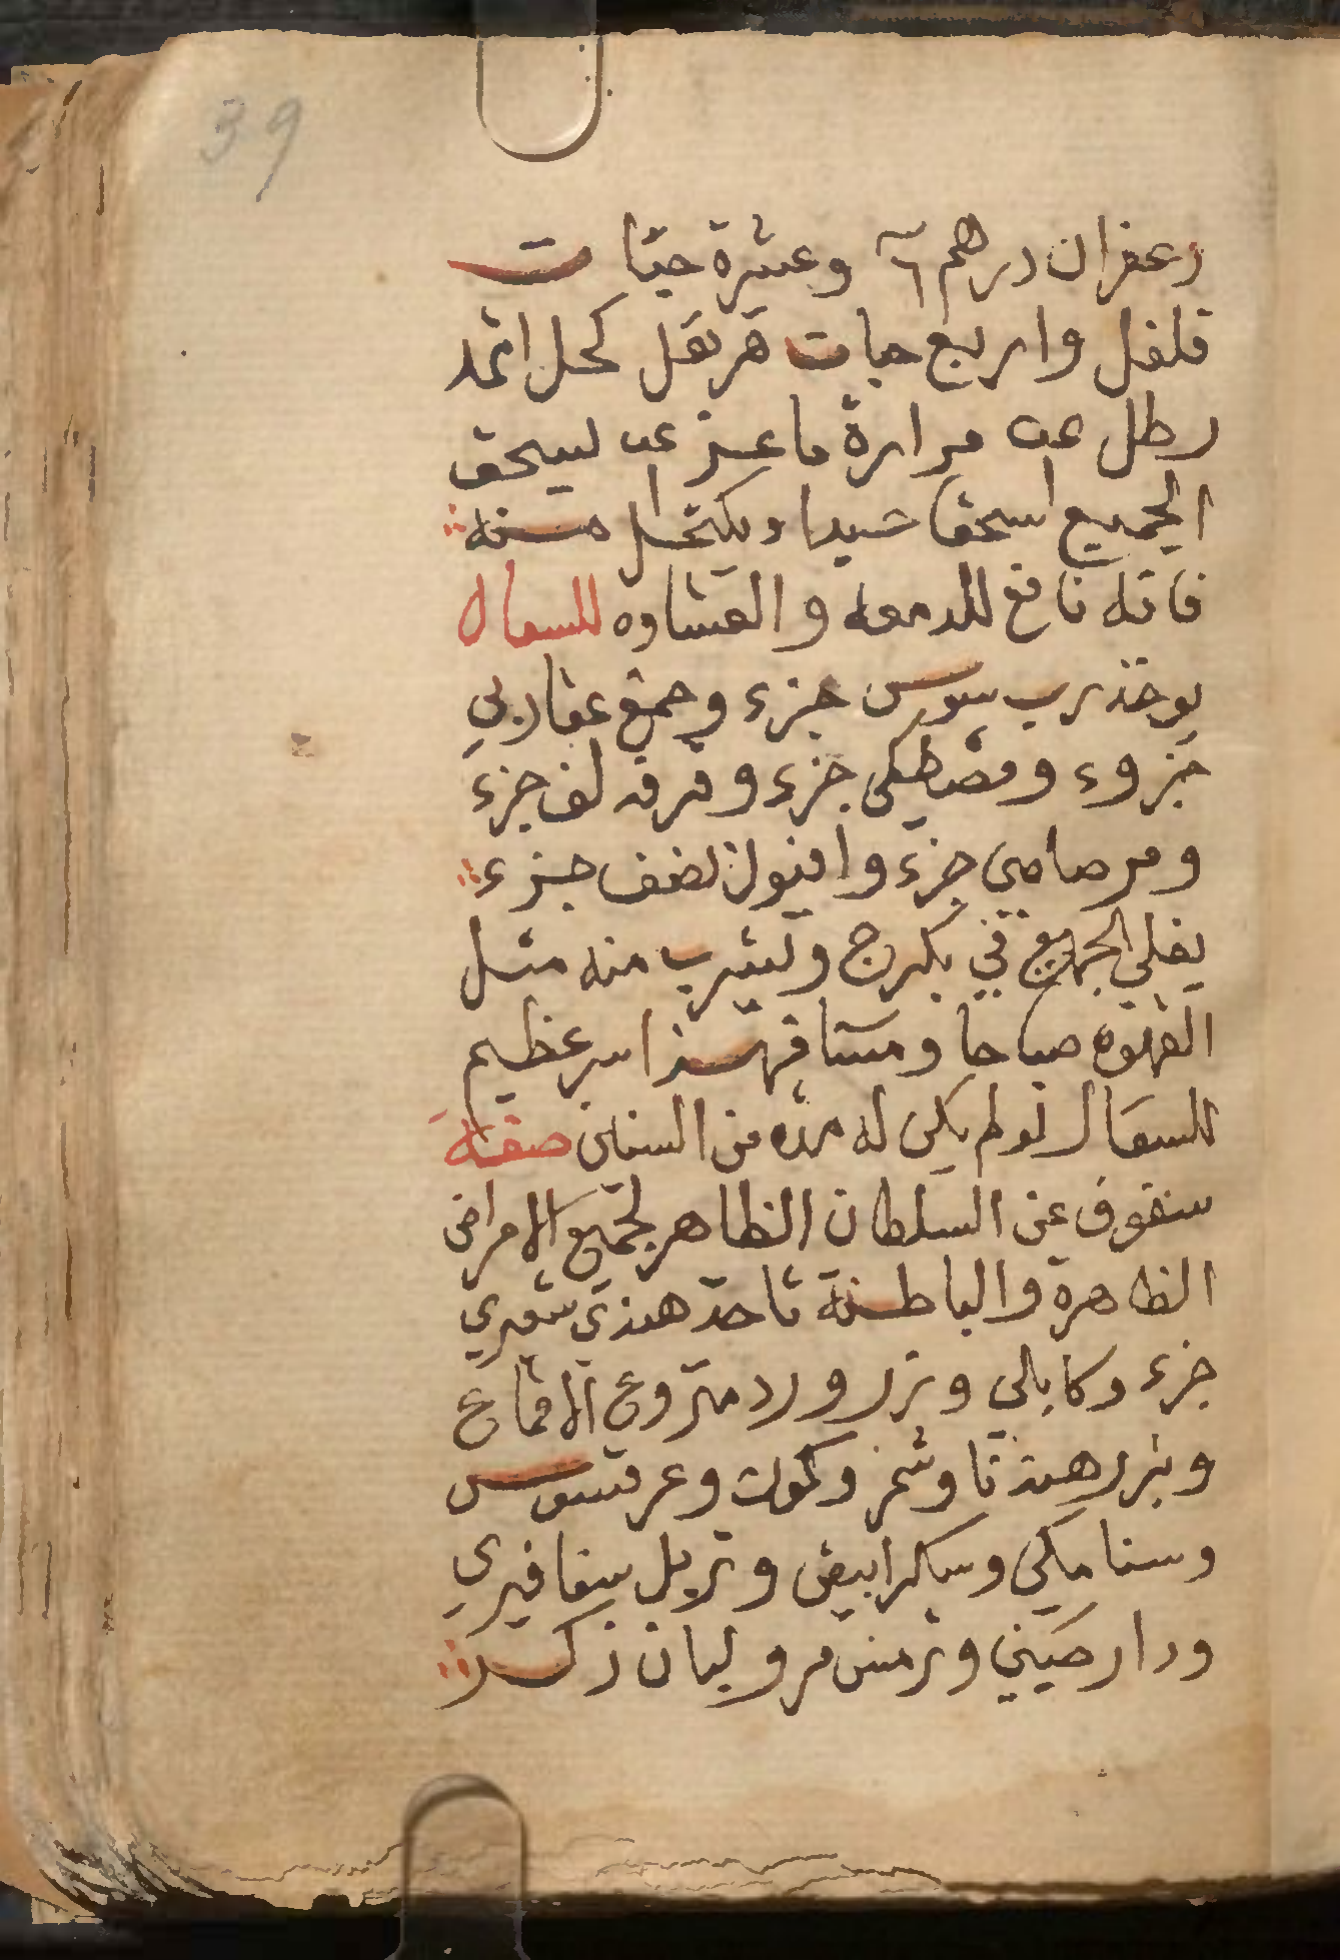 39
زعفران درهم ٦ وعشرة حبات
فلفل واربع حبات قرنفل كحل اثمد
رطل عـ مرارة ماعز عـ ليسحق
الجميع اسحقا جيدا ويكتحل منه
فانه نافع للدمعه والغشاوه للسعال
يوخذ رب سوس جزء وصمغ عقاربي
جزوء ومصطكى جزء وقرفه لف جزء
ومرصافي جزء وافيون نصف جزء
يغلي الجميع في بكرج ويشرب منه مثل
القهوه صباحا ومسا فهذا سر عظيم
للسعال لو لم يكن له مده من السنان صفة
سفوف عن السلطان الظاهر لجميع الامراض
الظاهرة والباطنة تاخذ هندي شعيري
جزء وكابلي وزر ورد منزوع الاقماع
وبزر هندبا وشمر وكمون وعرقسوس
وسنا مكي وسكر ابيض وتربل سفافيري
ودارصيني وترمس مر ولبان ذكر